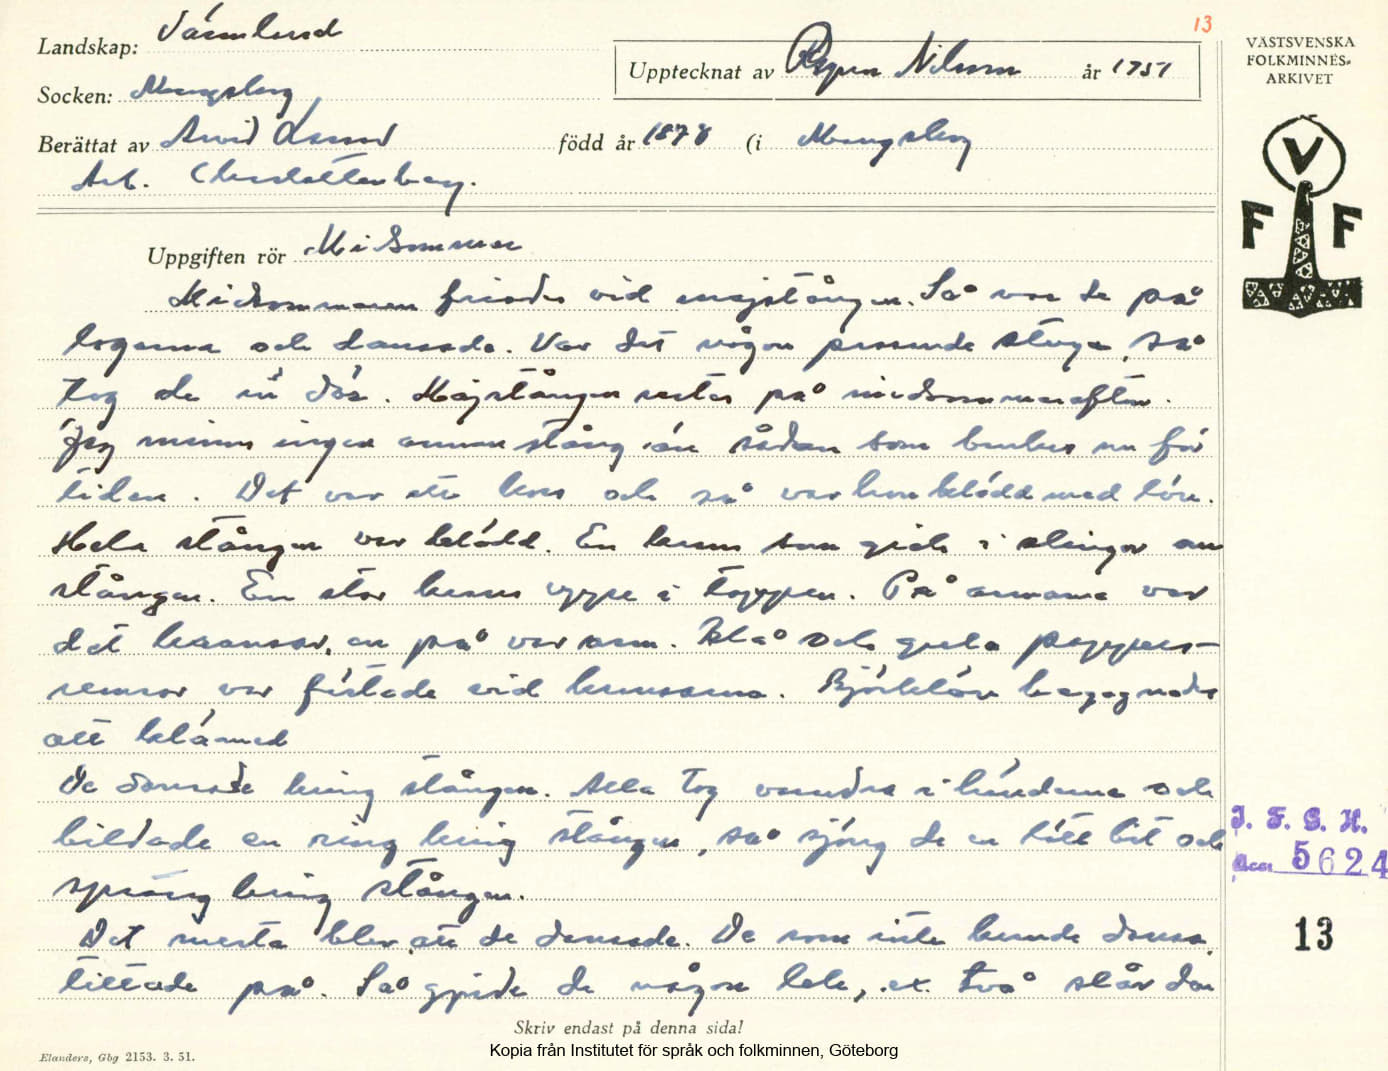 13
Landskap: Värmland
Upptecknat av Ragnar Nilsson år 1951
Socken: Mangskog
Berättat av Arvid Lund född år 1878 (i Mangskog
Ark. Charlottenberg.
VÄSTSVENSKA
FOLKMINNES-
ARKIVET
V
F F
Uppgiften rör Midsommar
Midsommaren firades vid majstången. Så var de på
logarna och dansade. Var det någon passande stuga, så
tog de in där. Majstången restes på midsommarafton.
Jag minns ingen annan stång än sådan som brukas nu för
tiden. Det var ett kors och så var hon klädd med löv.
Hela stången var klädd. En krans som gick i slingor om
stången. En stor krans uppe i toppen. På armarna var
det kransar, en på var arm. Blå och gula pappers-
remsor var fästade vid kransarna. Björklöv begagnades
att klä med
De dansade kring stången. Alla tog varandra i händerna och
bildade en ring kring stången, så sjöng de en lått bit och
sprang kring stången.
Det mesta blev att de dansade. De som inte kunde dansa,
tittade på. Så gjorde de någon lek, ex. två slår den
Skriv endast på denna sida!
Elanders, Gbg 2153. 3. 51.
Kopia från Institutet för språk och folkminnen, Göteborg
I. F. G. H.
Acc. 5624
13